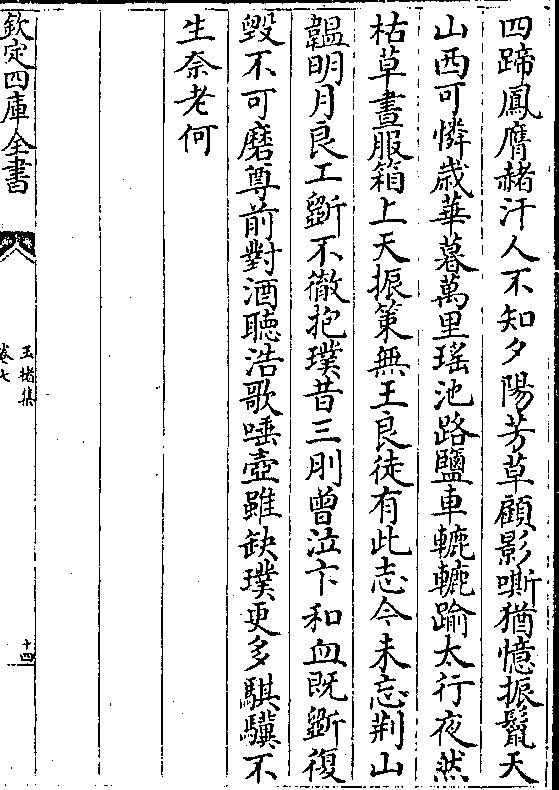 四蹄鳳膺赭汗人不知夕陽芳草顧影嘶猶憶振鬛天
山西可憐歳華暮萬里瑤池路鹽車轆轆踰太行夜然
枯草晝服箱上天振策無王良徒有此志今未忘荆山
韞明月良工斵不徹抱璞昔三刖曾泣卞和血既斵復
毀不可磨尊前對酒聽浩歌唾壺雖缺璞更多騏驥不
生奈老何
欽定四庫全書
玉楮集
卷七
十四